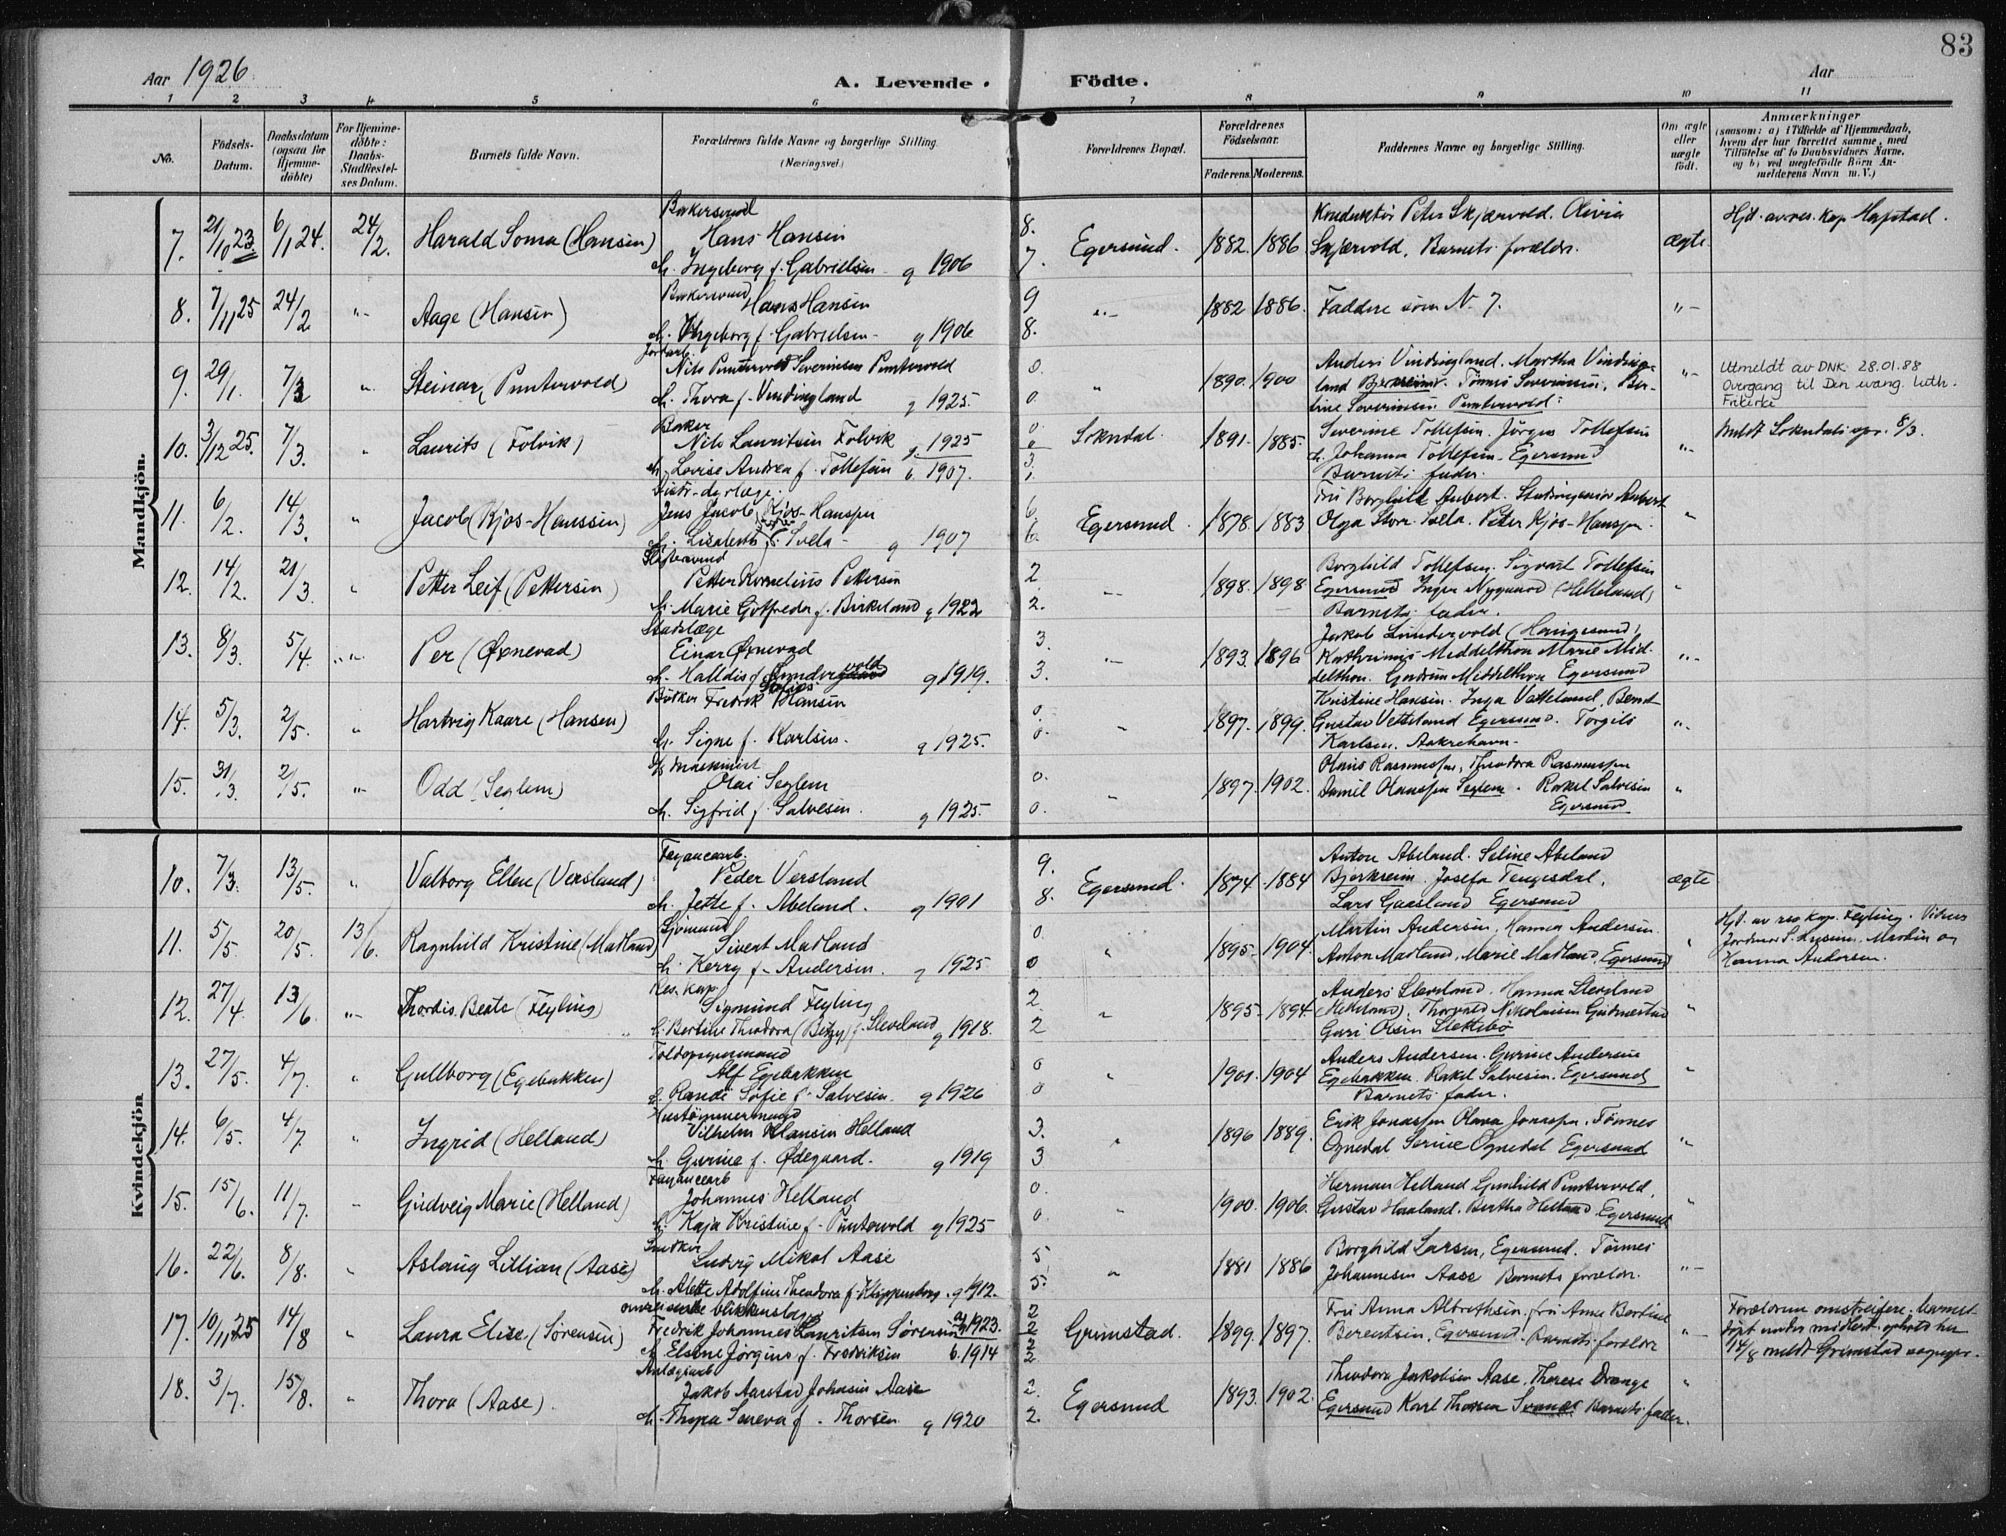 83
Aar 1926.
A. Levende.
Födte.
Aar
1 2 3 4 5 6 7 8 9 10 11
No.
Födsels-
Datum.
Daabsdatum
(ogsaa for
Hjemme-
döbte)
For Hjemme-
döbte:
Daabs-
Stadfæstel-
ses Datum.
Barnets fulde Navn.
Forældrenes fulde Navne og borgerlige Stilling.
(Næringsvei.)
Forældrenes Bopæl.
Forældrenes
Födselsaar.
Faderens. Moderens.
Faddernes Navne og borgerlige Stilling.
Om ægte
eller
uægte
födt.
Anmærkninger
(saasom: a) i Tilfælde af Hjemmedaab,
hvem der har forrettet samme, med
Tilföielse af to Daabsvidners Navne.
og b) ved uægtefödte Börn An-
melderens Navn m. V.)
Mandkjön.
7. 21/10 23. 6/1 24. 24/2. Harald Soma (Hansen)
Hans Hansen
h. Ingeborg f. Gabrielsen g 1906
8. 7.
Egersund. 1882. 1886
Konduktör Peter Skjærvold. Olivia
Skjærvold. Barnets foreldr.
ægte
Hjd. av res. kap. Hapstad.
8. 7/11 25 24/2 "- Aage (Hansen)
Hans Hansen
h. Ingeborg f. Gabrielsen - g 1906
9 8.
"- 1882 1886. Faddere som N. 7. "-
9. 29/1. 7/3 " Steinar (Puntervold)
Nils Puntervold Severinsen Puntervold
h. Thora f. Vindingland g 1925.
0. 0.
" 1890. 1900
Anders Vindingland. Martha Vinding-
land Bjerkreim. Tönnes Severinsen. Ber-
tine Severinsen Puntervold.
"-
Utmeldt av DNK 28.01.88
Overgang til Den evang. luth.
Frikirke
10. 3/12 25. 7/3. " Laurits (Folvik)
Nils Lauritsen Folvik g. 1925
h. Lovise Andrea f. Tollefsen b. 1907.
Sokndal. 1891. 1885.
Severine Tollefsen. Jörgen Tollefsen
h. Johanna Tollefsen - Egersund
Barnets fader.
"-
Meldt Sokndals spr. 8/3.
11. 6/2. 14/3. " Jacob (Kjos-Hanssen)
Jens Jacob Kjos-Hanssen
h. Lisabeth f. Svela - g 1907
6 6.
Egersund. 1878. 1883
Fru Borghild Aubert. Stadsingeniör Aubert
Olga Storr. Svela. Peter Kjos-Hanssen.
"
12. 14/2. 21/3. " Petter Leif (Pettersen)
Petter Kornelius Pettersen
h. Marie Gotfreda f. Birkeland g 1922
2. 2.
"- 1898. 1898
Borghild Tollefsen. Sigvart Tollefsen
Egersund Inger Nygaard (Helleland)
Barnets fader.
"
13. 8/3. 5/4. "-"- Per (Øxnevad)
Einar Øxnevad
h. Halldis f. g 1919.
3. 3.
"- 1893. 1896
Jakob Lundervold (Haugesund)
Kathrinus Middelthon Marie Mid-
delthon. Gudrun Middelthon Egersund
"-
14. 5/3. 2/5. " Hartvig Kaare (Hansen)
Bödker Fredrik Hansen
h. Signe f. Karlsen. g 1925.
0. 0.
" 1897. 1899.
Kristine Hansen. Inga Vatteland. Bernt
Gustav Vetteland Egersund. Torgils
Karlsen. Aakrehavn.
"
15. 31/3. 2/5. "- Odd (Seglem)
Maskinist
Olai Seglem
h. Sigfrid f. Salvesen. g 1925.
0. 0.
" 1897. 1902.
Olaus Rasmussen, Theodora Rasmussen
Daniel Olaussen Seglem. Rakel Salvesen
Egersund
"
Kvindekjön
10. 7/3. 13/5. " Valborg Ellen (Versland)
Fayancearb.
Peder Versland
h. Jette f. Abeland. g 1901
9. 8.
Egersund. 1874. 1884
Anton Abeland. Seline Abeland
Bjerkreim. Josefa Tengesdal.
Lars Gaasland Egersund
ægte
11. 5/5. 20/5. 13/6. Ragnhild Kristine (Madland)
Sjömand
Sivert Madland
h. Kerry f. Andersen. g 1925
0. 0
" 1895. 1904.
Martin Andersen, Hanna Andersen.
Anton Madland. Marie Madland. Egersund
"
Hjd. av res kap. Feyling. Vidner
Jordmor S. Martin og
Hanna Andersen.
12. 27/4. 13/6. "- Thordis Beate (Feyling)
Res. kap.
Sigmund Feyling
h. Bertine Theodora (Bitzy) f. Sleveland g 1918.
2. 2
" 1895. 1894
Anders Sleveland. Hanna Sleveland
(Helleland). Thorvald Nikolaisen Gudmestad
Guri Olsen Slettebö
"
13. 27/5. 4/7. " Gullborg (Egebakken)
Toldopsynsmand
Alf Egebakken
h. Randi Sofie f. Salvesen. g 1926
0 0
" 1901. 1904
Anders Andersen. Gurine Andersen
Egebakken. Rakel Salvesen. Egersund
Barnets fader.
"
14. 6/5. 4/7. " Ingrid (Helland)
Hustömmermand
Vilhelm Hansen Helland
h. Gurine f. Ødegaard. g 1919
3. 3
" 1896 1889.
Erik Jonassen Olava Jonassen. Tönnes
Ognedal Serine Ognedal Egersund
"
15. 15/6. 11/7. " Gudveig Marie (Helland)
Fayancearb
Johannes Helland
h. Kaja Kristine f. Puntervold g 1925
0. 0.
" 1900. 1906.
Herman Helland Gunhild Puntervold.
Gustav Haaland. Bertha Helland. Egersund
"
16. 22/6. 8/8. " Aslaug Lillian (Aase)
Snedker
Ludvig Mikal Aase
h. Alette Adolfine Theodora f. Kluppenborg. g 1912.
5 5.
" 1881 1886
Borghild Larsen, Egersund. Tönnes
Johannesen Aase Barnets foreldr.
"-
17. 10/11 25 14/8 " Laura Elise (Sørensen)
omreisende blikkenslager
Fredrik Johannes Lauritsen Sørensen g 1923.
h. Elene Jörgine f. Fredriksen b. 1914
Grimstad. 1899. 1897.
Fru Anna Albrethsen, fru Anna Bertine
Berentsen, Egersund. Barnets foreldr
"-
Foreldrene omstreifere. barnet
döpt under midlert. ophold her
14/8 meldt Grimstad sognepr.
18. 3/7. 15/8. " Thora (Aase)
Anlægsarb
Jakob Aarstad Johnsen Aase
h. Thora f. Thorsen g 1920
2. 2.
Egersund 1893. 1902.
Theodora Jakobsen Aase. Therese Drange
Egersund Karl Thorsen Barnets fader.
"